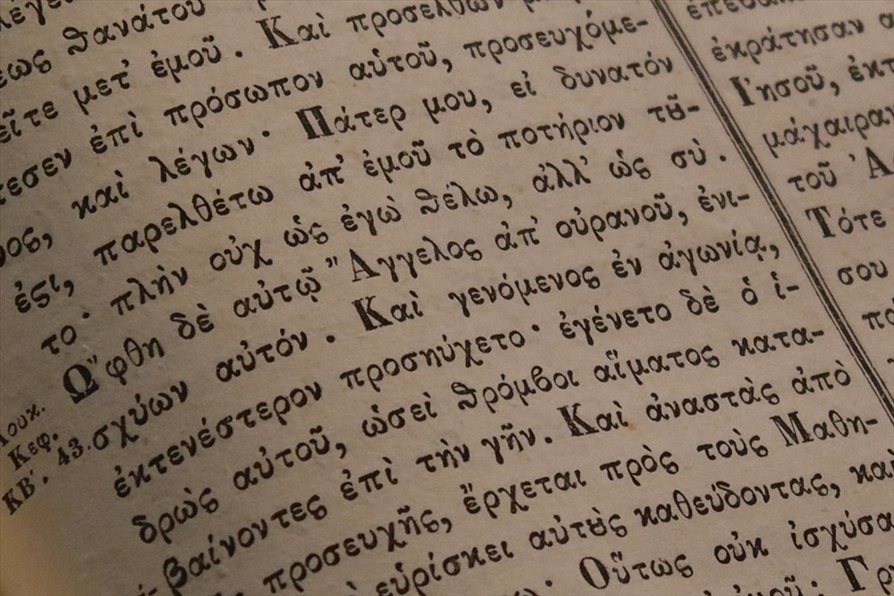 θανάτου
μετ' ἐμοῦ . Καὶ προσελθὼν
ἐπὶ πρόσωπον αὐτοῦ, προσευχόμε-
καὶ λέγων· Πάτερ μου, εἰ δυνατόν
ἐϛι, παρελθέτω ἀπ' ἐμοῦ τὸ ποτήριον τȣ͂-
το· πλὴν οὐχ ὡς ἐγὼ θέλω, ἀλλ' ὡς σύ .
Ὤφθη δὲ αὐτῷ Ἄγγελος ἀπ' οὐρανοῦ, ἐνι-
σχύων αὐτόν . Καὶ γενόμενος ἐν ἀγωνίᾳ,
ἐκτενέστερον προσηύχετο· ἐγένετο δὲ ὁ ἱ-
δρὼς αὐτοῦ, ὡσεὶ θρόμβοι αἵματος κατα-
βαίνοντες ἐπὶ τὴν γῆν. Καὶ ἀναστὰς ἀπὸ
προσευχῆς, ἔρχεται πρὸς τοὺς Μαθη-
εὑρίσκει αὐτȣ̀ς καθεύδοντας, καὶ
Οὕτως οὐκ ἰσχύσα
Κεφ.
ΚΒ'. 43.
ἐκράτησαν
Ἰησοῦ, ἐκτ
μάχαιραν
τοῦ Ἀ
Τότε
σου